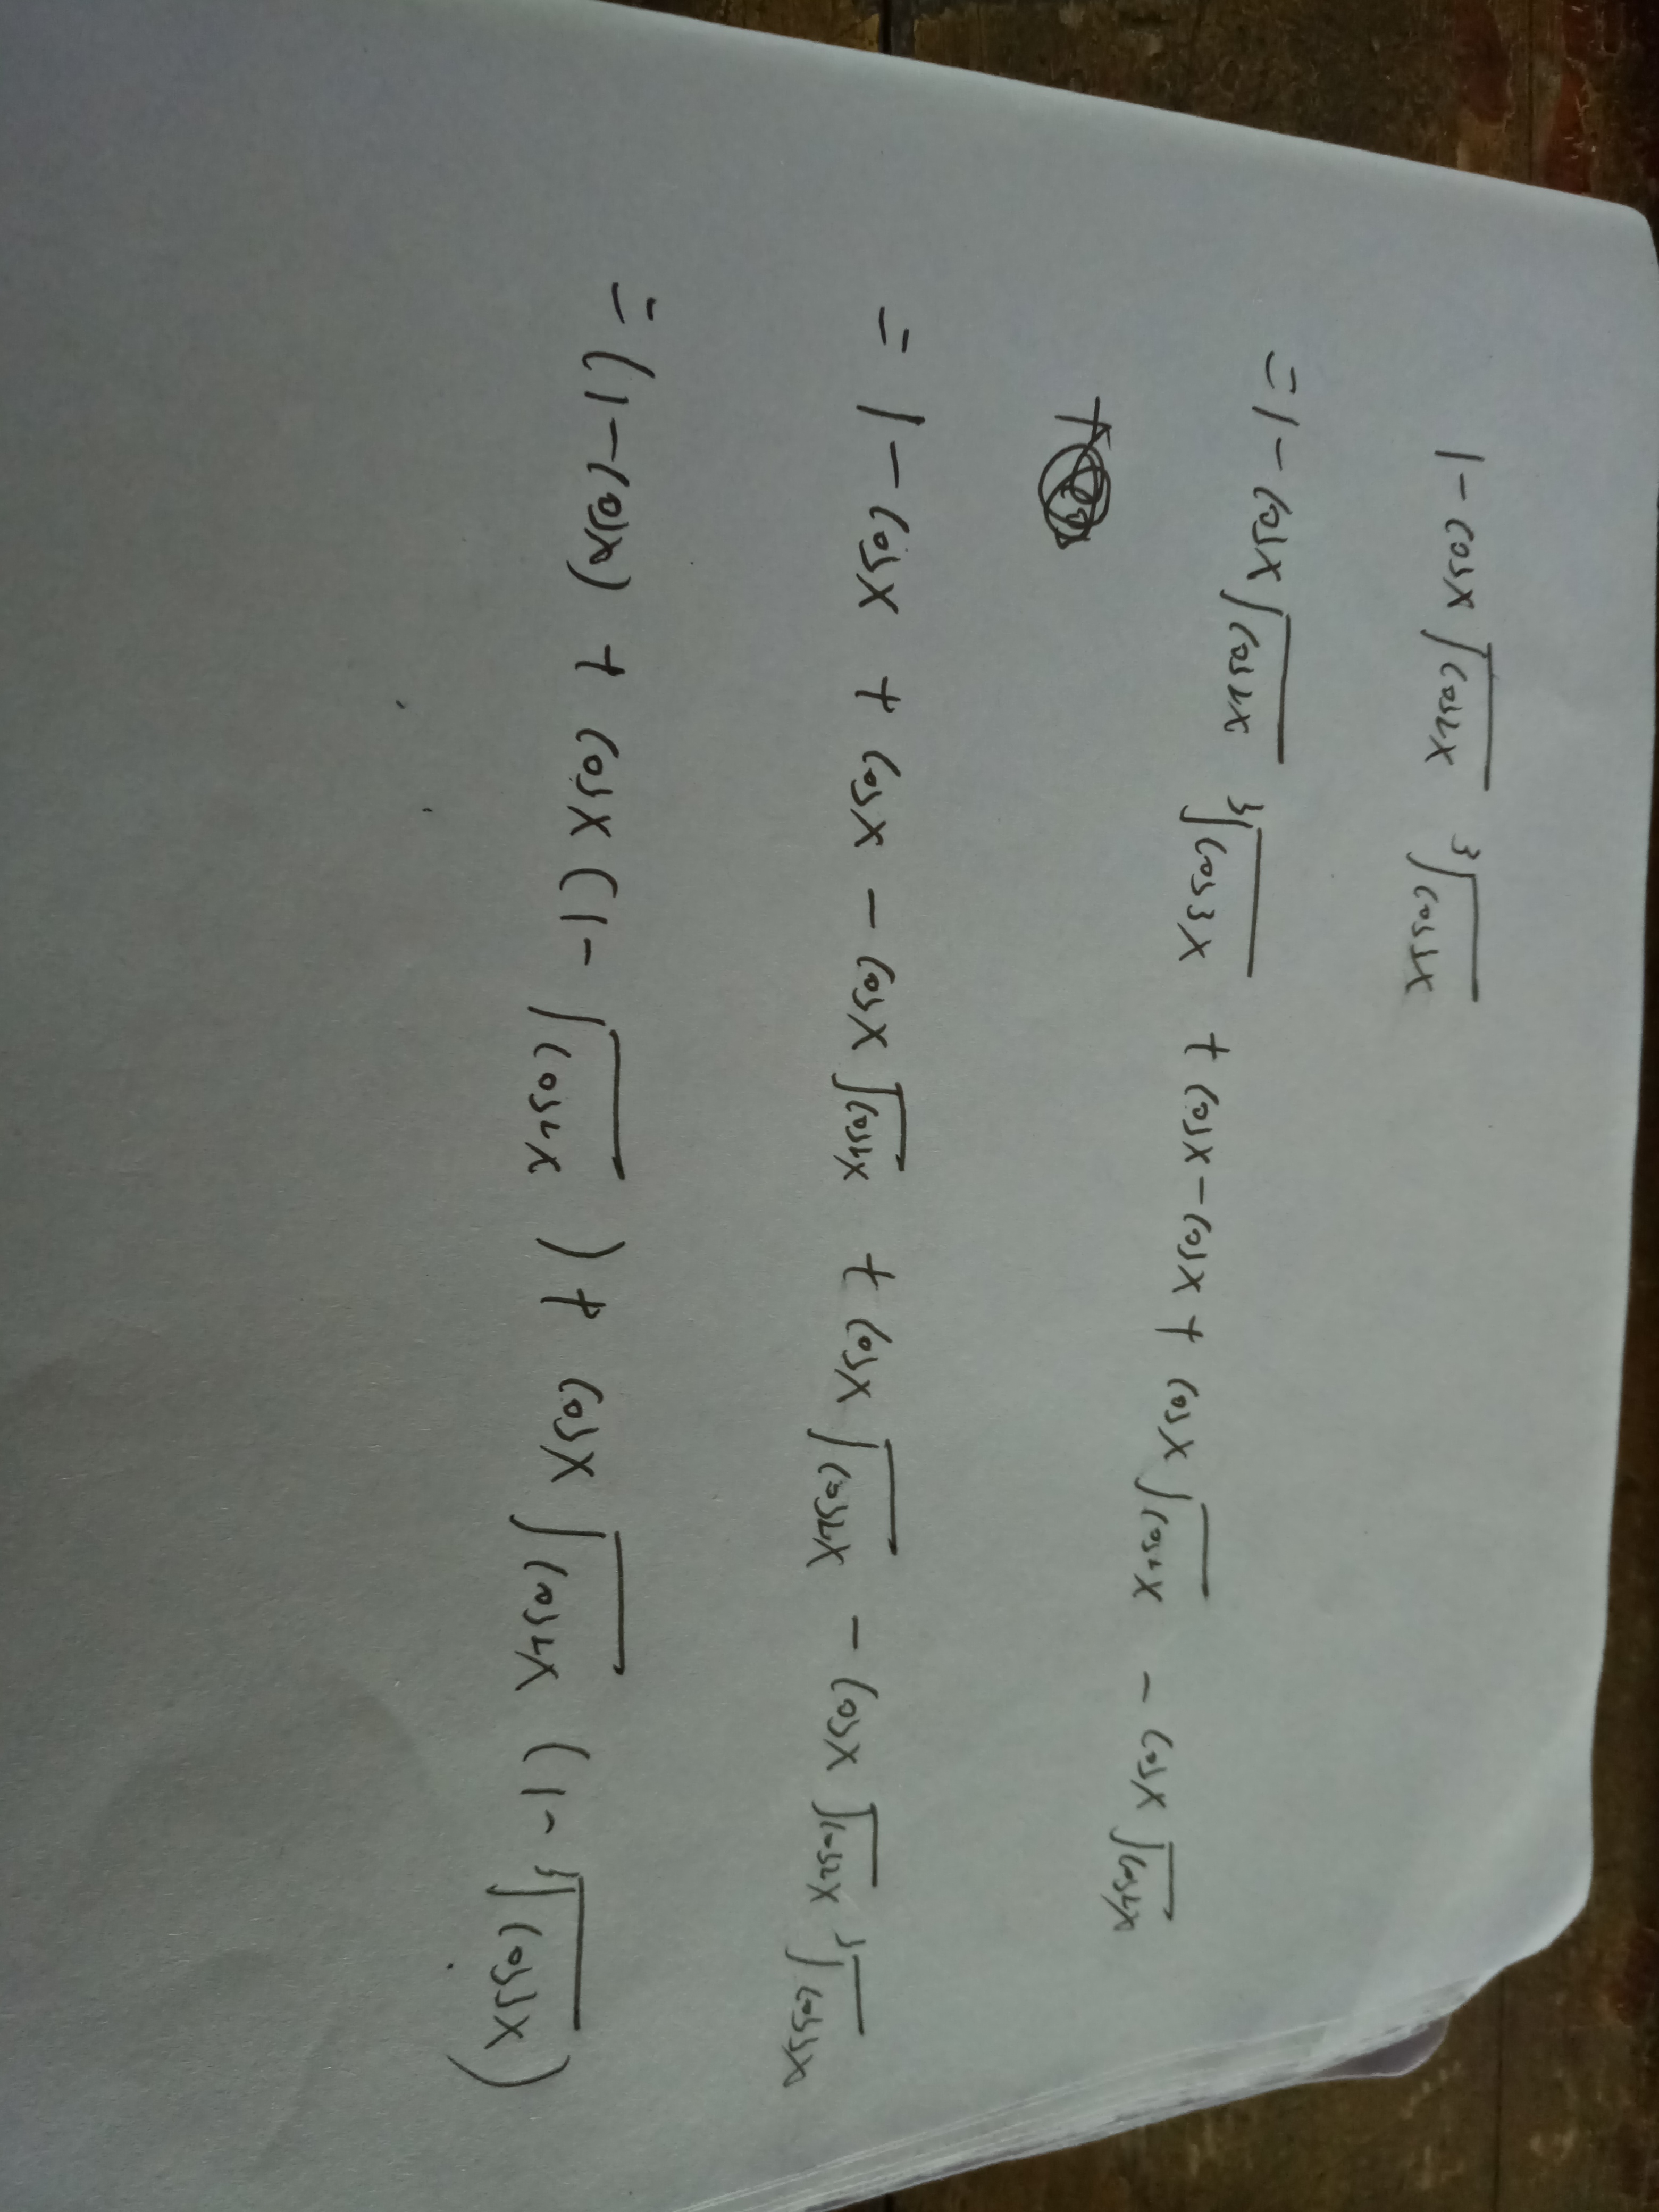 1-cosx√cos2x ³√cos3x
=1-cosx√cos2x ³√cos3x +cosx-cosx+cosx√cos2x -cosx√cos2x
+
=1-cosx+cosx-cosx√cos2x +cosx√cos2x -cosx√cos2x ³√cos3x
=(1-cosx)+cosx(1-√cos2x)+cosx√cos2x(1-³√cos3x)